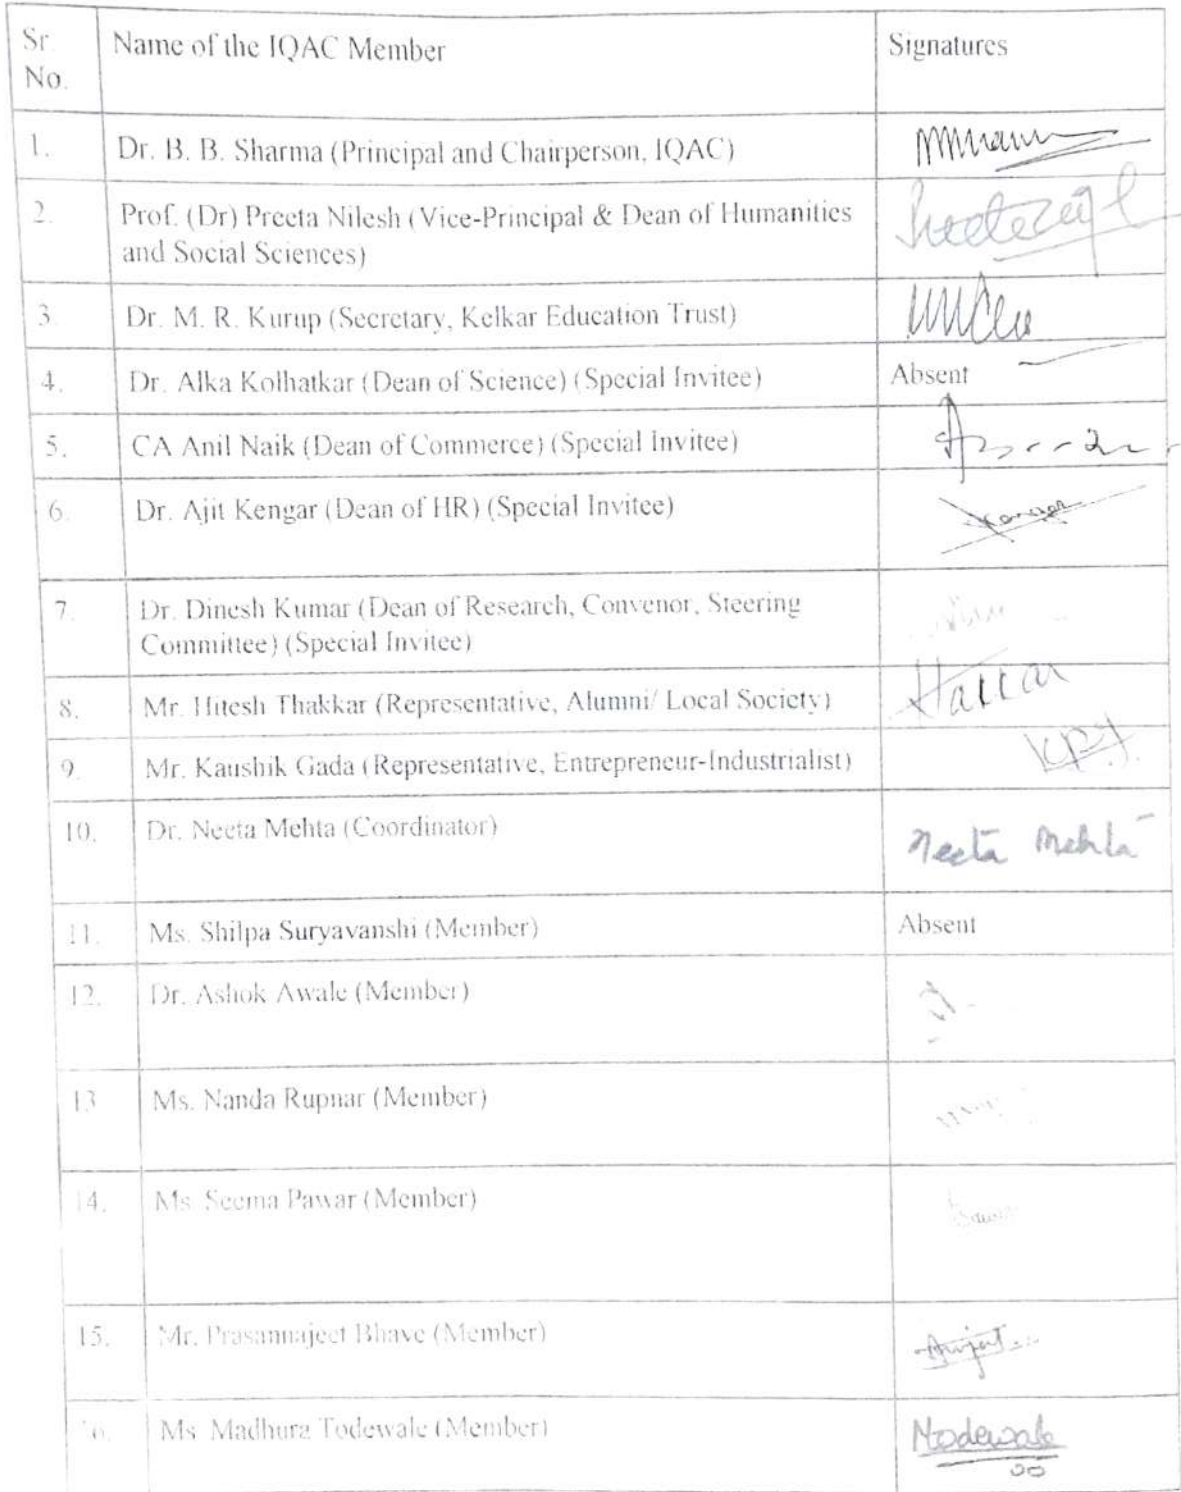 Sr.
No.
Name of the IQAC Member
Signatures
1.
Dr. B. B. Sharma (Principal and Chairperson, IQAC)
2.
Prof. (Dr) Preeta Nilesh (Vice-Principal & Dean of Humanities
and Social Sciences)
3.
Dr. M. R. Kurup (Secretary, Kelkar Education Trust)
4.
Dr. Alka Kolhatkar (Dean of Science) (Special Invitee)
Absent
5.
CA Anil Naik (Dean of Commerce) (Special Invitee)
6.
Dr. Ajit Kengar (Dean of HR) (Special Invitee)
7.
Dr. Dinesh Kumar (Dean of Research, Convenor, Steering
Committee) (Special Invitee)
8.
Mr. Hitesh Thakkar (Representative, Alumni/ Local Society)
9.
Mr. Kaushik Gada (Representative, Entrepreneur-Industrialist)
10.
Dr. Neeta Mehta (Coordinator)
Neeta Mehta
11.
Ms. Shilpa Suryavanshi (Member)
Absent
12.
Dr. Ashok Awale (Member)
13
Ms. Nanda Rupnar (Member)
14.
Ms. Seema Pawar (Member)
15.
Mr. Prasannajeet Bhave (Member)
16.
Ms. Madhura Todewale (Member)